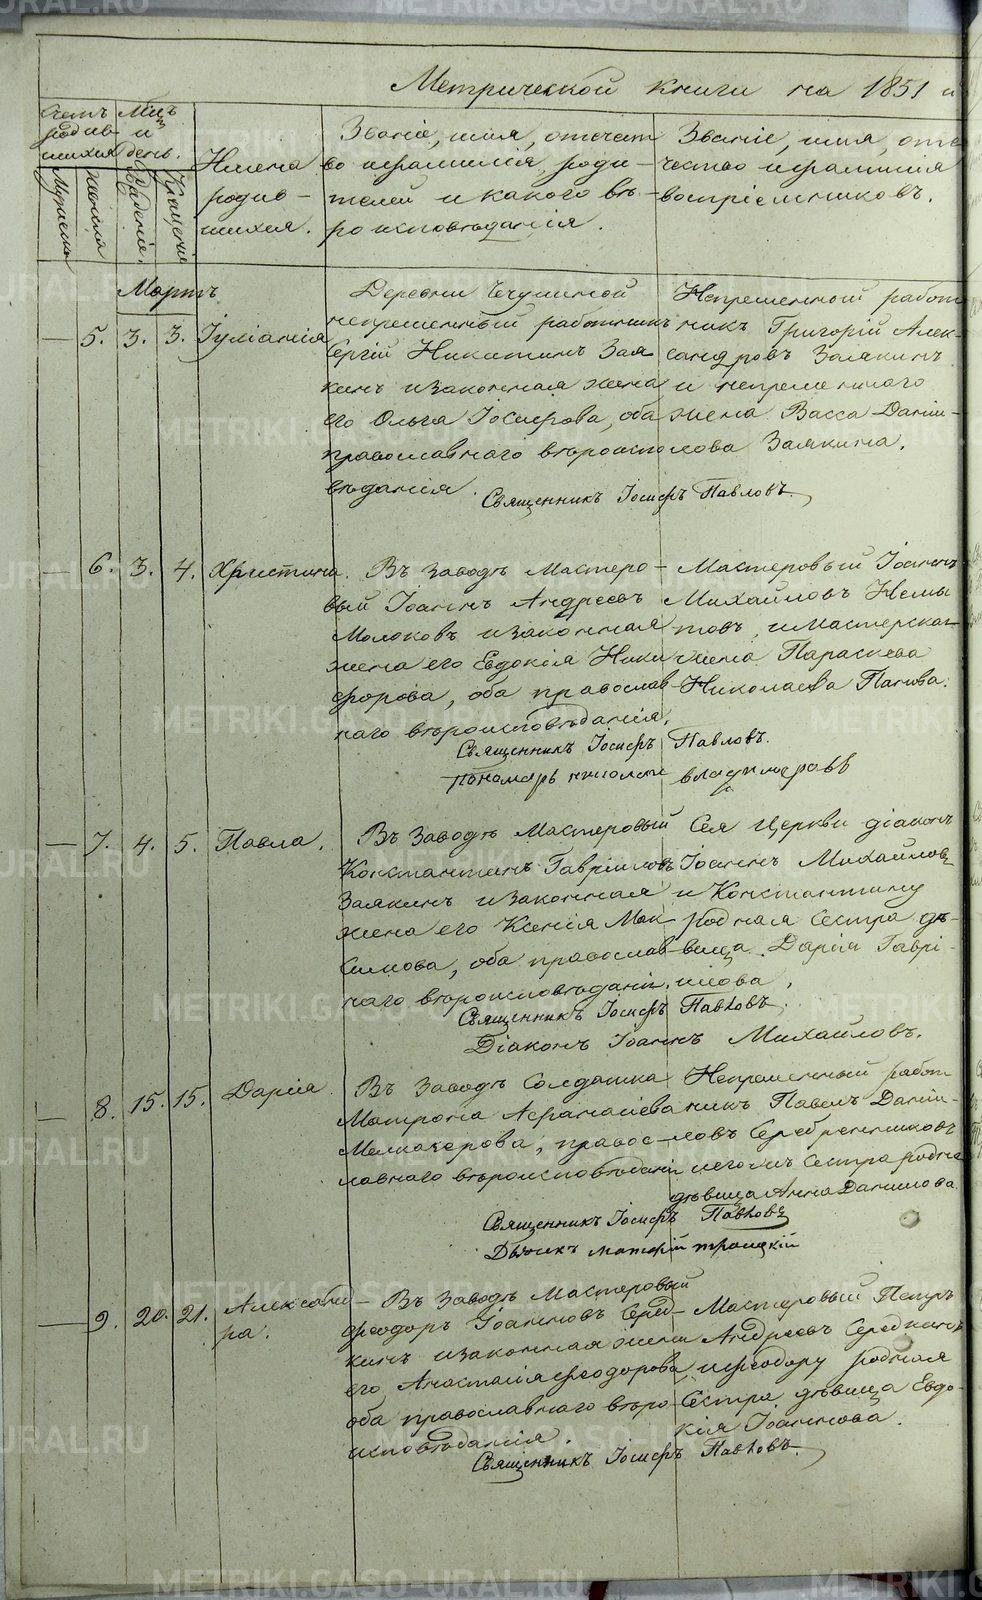 Метрической книги на 1851 и
Счетъ родив-шихся
Мѣц. и день.
Мужеска
Женска
Рожденія.
Крещенія
Имена родив-шихся.
Званіе, имя, отчест-
во и фамилія роди-
телей и какого вѣ-
роисповѣданія.
Званіе, имя, отче
чество и фамилія
воспріемниковъ.
Мартъ
— 5. 3. 3. Іуліанія
Деревни Чечулиной
непремѣнный работникъ
Сергій Никитинъ Зая
кинъ и законная жена
его Ольга Іосифова, оба
православнаго вѣроиспо
вѣданія.
Непремѣнной работ
никъ Григорій Алек-
сандровъ Заякинъ
и непремѣннаго
жена Васса Даніи-
лова Заякина.
Священникъ Іосифъ Павловъ
— 6. 3. 4. Христина.
Въ Заводѣ Мастеро-
вый Іоаннъ Андреевъ
Молоковъ и законная
жена его Евдокія Ники
форова, оба православ-
наго вѣроисповѣданія.
Мастеровый Іоаннъ
Михайловъ
товъ, и Мастерская
жена Параскева
Николаева Панова.
Священникъ Іосифъ Павловъ.
Пономарь Николай Владимировъ
— 7. 4. 5. Павла.
Въ Заводѣ Мастеровый
Константинъ Гавріиловъ
Заякинъ и законная
жена его Ксенія Мак-
симова, оба православ-
наго вѣроисповѣданія.
Сея Церкви діаконъ
Іоаннъ Михайловъ
и Константину
родная Сестра дѣ-
вица Дарія Гаврі-
илова.
Священникъ Іосифъ Павловъ.
Діаконъ Іоаннъ Михайловъ.
— 8. 15. 15. Дарія.
Въ Заводѣ Солдатка
Матрона Афанасіева
православнаго вѣроисповѣданія
Непремѣнный работ
никъ Павелъ Даніи-
ловъ Серебренниковъ
и его Сестра родная
дѣвица Анна Данилова.
Священникъ Іосифъ Павловъ
Дьячекъ Троицкій
— 9. 20. 21. Александ-
ра.
Въ Заводѣ Мастеровый
Феодоръ Іоанновъ Серед-
кинъ и законная жена
его Анастасія Феодорова,
оба православнаго вѣро-
исповѣданія.
Мастеровый Петръ
Андреевъ Середкинъ
и Феодору родная
Сестра дѣвица Евдо-
кія Іоаннова.
Священникъ Іосифъ Павловъ.
METRIKI.GASO-URAL.RU